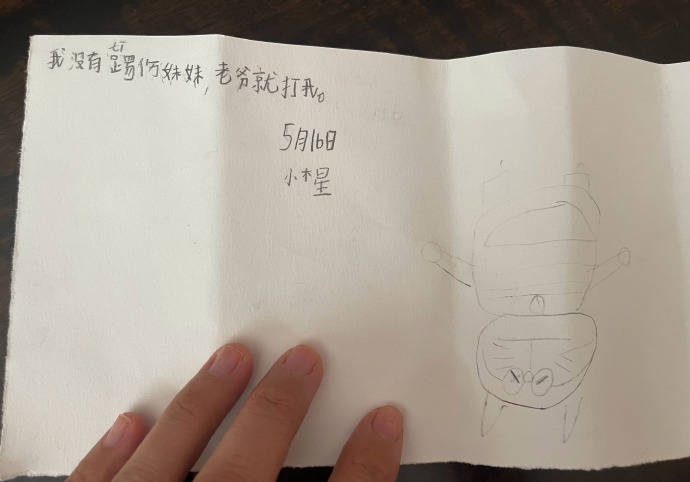 tī
我没有踢伤妹妹，老爷就打我。
5月16日
小木星